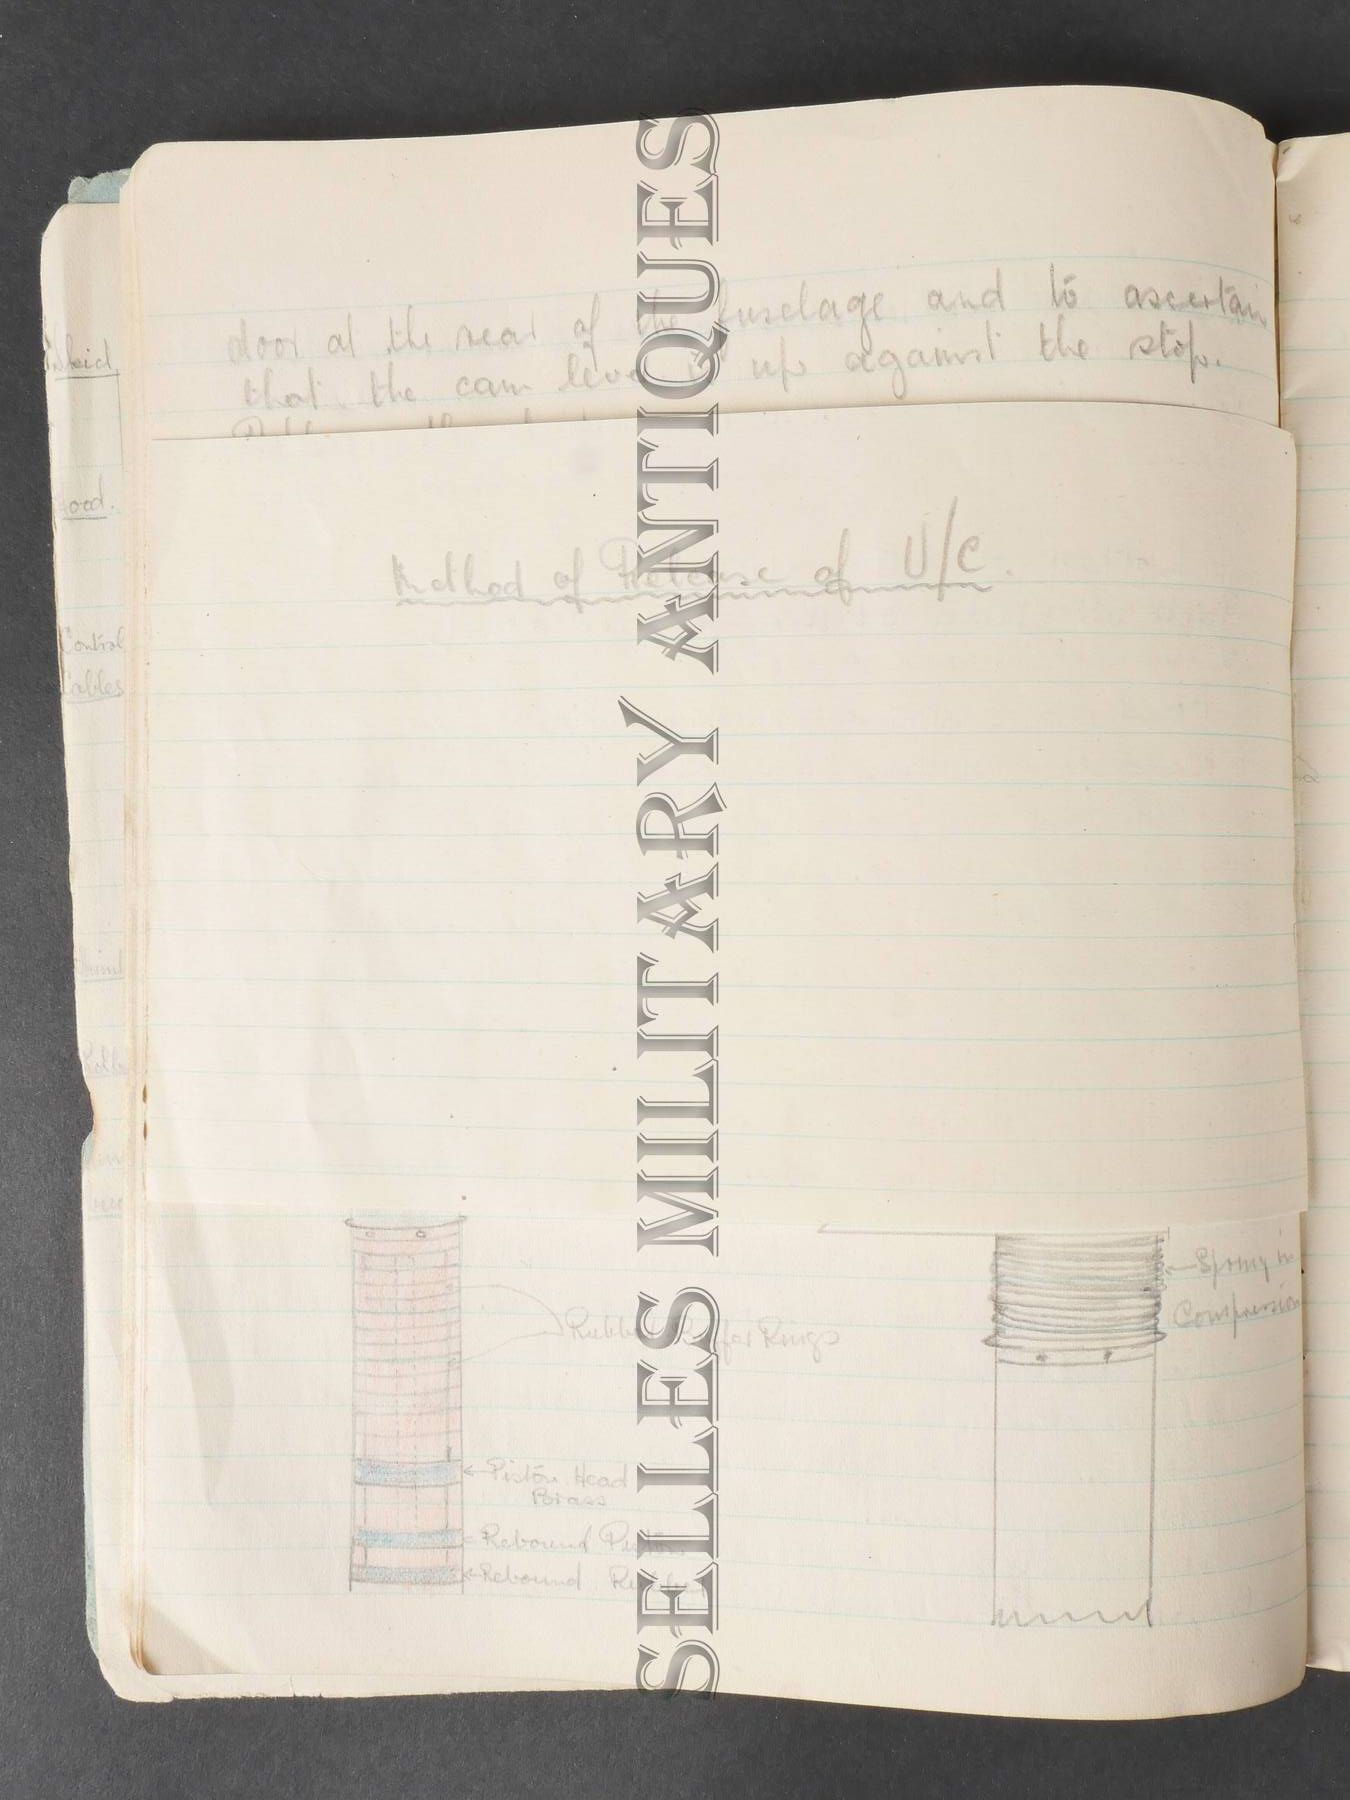 door at the rear of the fuselage and to ascertain
that the cam lever is up against the stop.
Method of Release of U/C.
skid
Control
Cables
Spring in
Compression
Rubber Rings
Piston Head
Brass
Rebound Piston
Rebound
SELLES MILITARY ANTIQUES